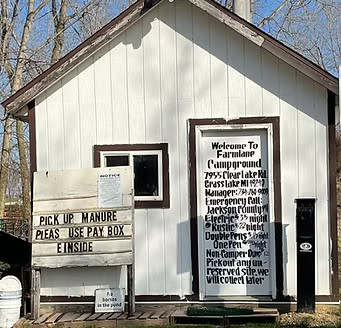 Welcome To
Farmlane
Campground
7955 Clear Lake Rd.
Grass Lake MI 49240
Manager:
Emergency Call:
Jackson County 911
Electric
Rustic night
Double Pens
One Pen night
Non-Camper-Day
Pick out any un-
reserved site, we
will collect later
NOTICE
PICK UP MANURE
PLEAS USE PAY BOX
EINSIDE
No
horses
in the pond